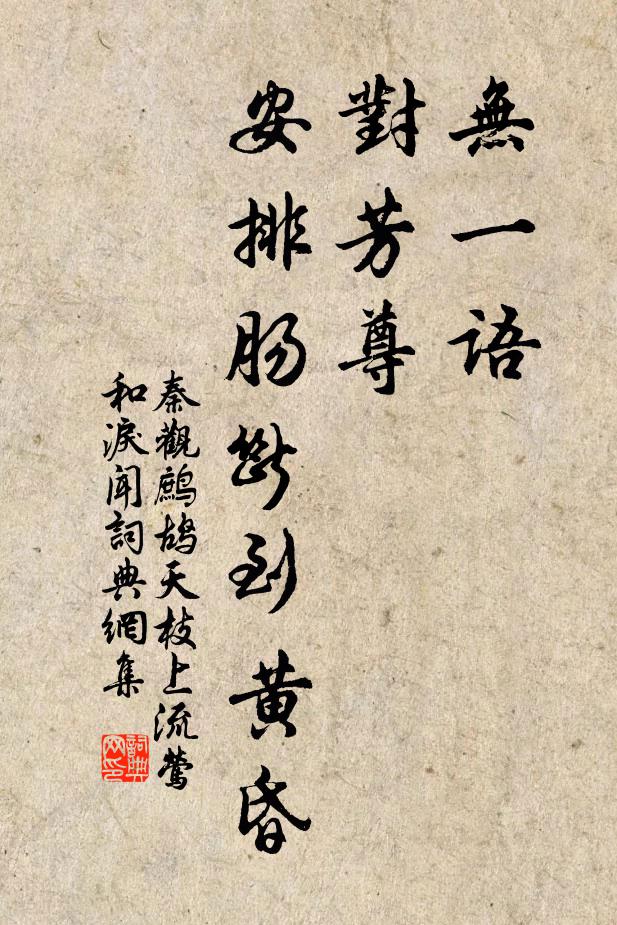 無一語
對芳尊
安排肠斷到黄昏
秦觀鷓鴣天枝上流鶯
和淚聞詞典網集
詞典
网印